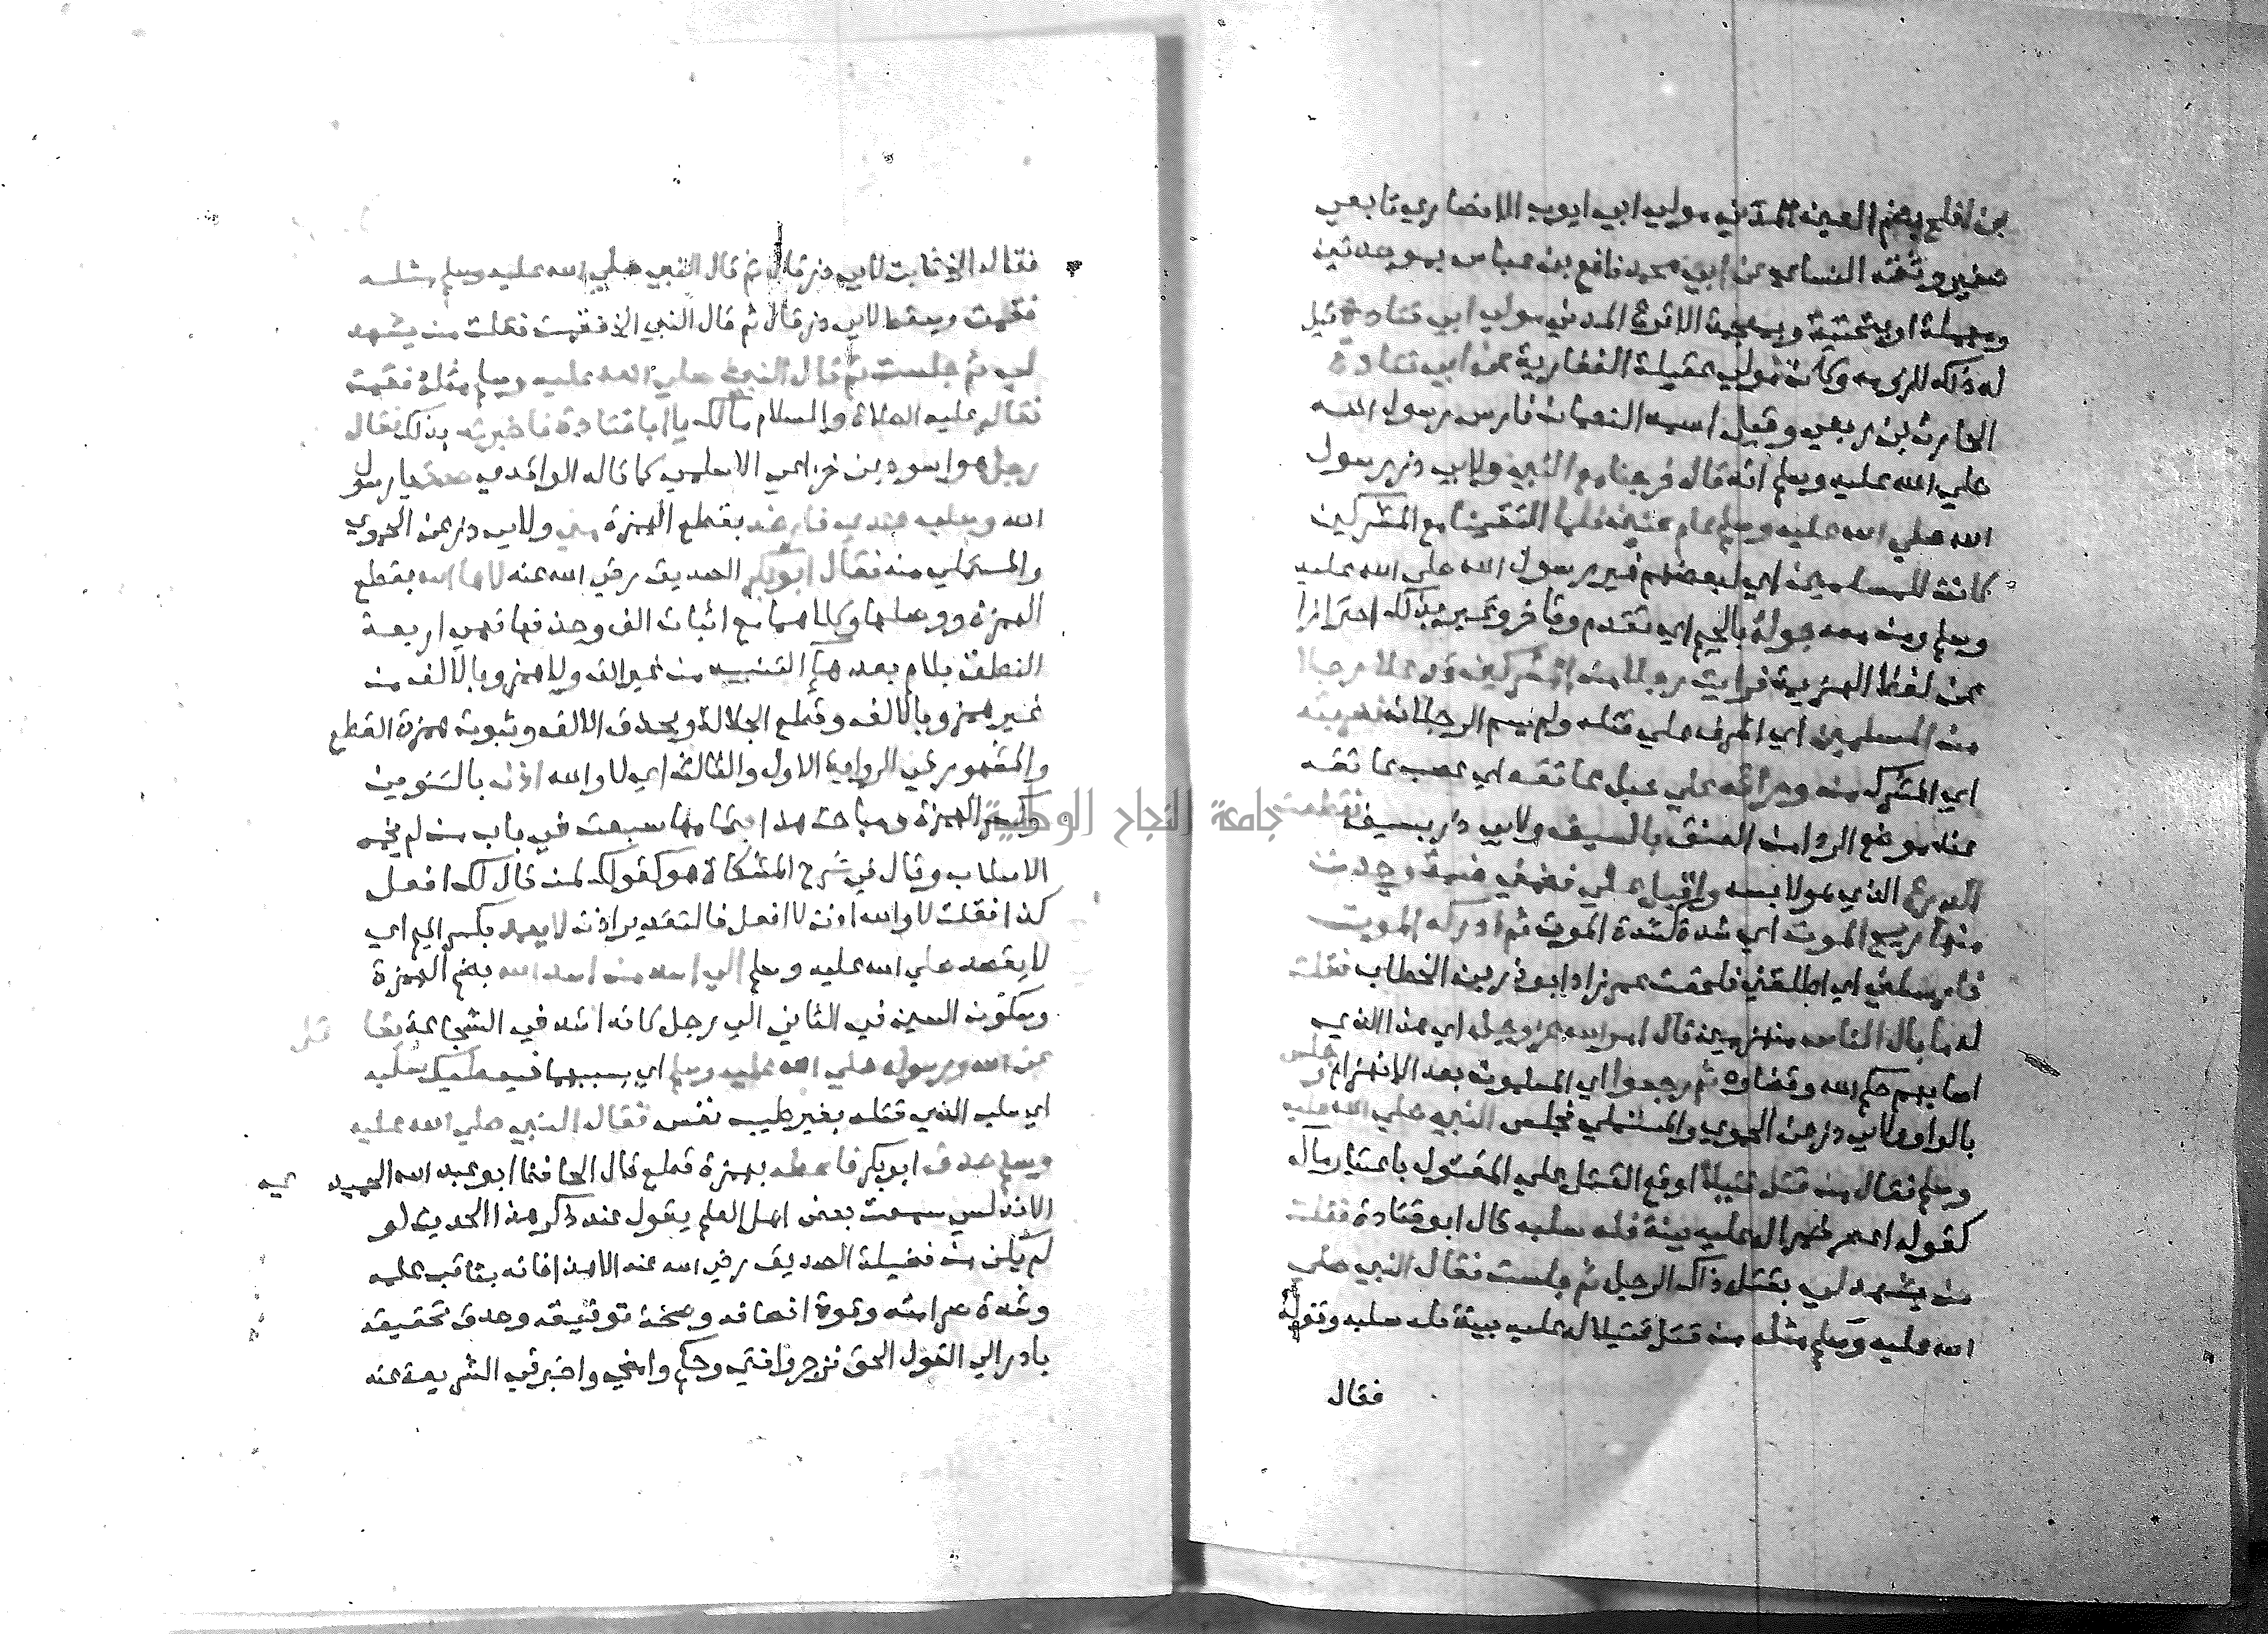 بن افلح بضم العين المدني مولي ابي ايوب الانصاري تابعي
صغير وثقه النساي عن ابي محمد نافع بن عباس بموحدتين
ومهملة او بتحتية وبمعجمة الاقرع المدني مولي ابي قتادة قيل
له ذلك للزومه وكان مولي عقيلة الغفارية عن ابي قتادة
الحارث بن ربعي وقيل اسمه النعمان فارس رسول الله
صلي الله عليه وسلم انه قال خرجنا مع النبي ولابي ذر رسول
الله صلي الله عليه وسلم عام حنين فلما التقينا مع المشركين
كانت للمسلمين اي لبعضهم غير رسول الله صلي الله عليه
وسلم ومن معه جولة بالجيم اي تقدم وتاخر وعبر بذلك احترازا
عن لفظ الهزيمة فرايت رجلا من المشركين قد علا رجلا
من المسلمين اي اشرف علي قتله ولم يسم الرجلان فضربته
اي المشرك من ورائه علي حبل عاتقه اي عصب عاتقه
عند موضع الردا من العنق بالسيف ولابي ذر بسيف فقطعت
الدرع الذي هو لابسه واقبل علي فضمني ضمة وجدت
منها ريح الموت اي شدة كشدة الموت ثم ادركه الموت
فارسلني اي اطلقني فلحقت عمر زاد ابو ذر بن الخطاب فقلت
له ما بال الناس منهزمين قال امر الله عز وجل اي هذا الذي
اصابهم حكم الله وقضاوه ثم رجعوا اي المسلمون بعد الانهزام وجلس
بالواو ولابي ذر عن الحموي والمستملي فجلس النبي صلي الله عليه
وسلم فقال من قتل قتيلا اوقع القتل علي المقتول باعتبار مآله
كقوله اعصر خمرا له عليه بينة فله سلبه قال ابو قتادة فقلت
من يشهد لي بقتل ذاك الرجل ثم جلست فقال النبي صلي
الله عليه وسلم مثله من قتل قتيلا له عليه بينة فله سلبه وقوله
فقال
فقال الخ ثابت لابي ذر قال ثم قال النبي صلي الله عليه وسلم مثله
فقمت وسقط لابي ذر قال ثم قال النبي الخ فقمت فقلت من يشهد
لي ثم جلست ثم قال النبي صلي الله عليه وسلم مثله فقمت
فقال عليه الصلاة والسلام مالك يا ابا قتادة فاخبرته بذلك فقال
رجل هو اسود بن خزاعي الاسلمي كما قاله الواقدي صدق يا رسول
الله وسلبه عندي فارضه بقطع الهمزة مني ولابي ذر عن الحموي
والمستملي منه فقال ابو بكر الصديق رضي الله عنه لاها الله بقطع
الهمزة ووصلها وكلاهما مع اثبات الف وحذفها فهي اربعة
النطق بلام بعد ها التنبيه من غير الف ولا همز وبالالف من
غير همز وبالالف وقطع الجلالة وبحذف الالف وثبوت همزة القطع
والمشهور في الرواية الاول والثالث اي لا والله اذن بالتنوين
وكسر الهمزة ومباحث هذا بتمامها سبقت في باب من لم يخمس
الاسلاب وقال في شرح المشكاة هو كقولك لمن قال لك افعل
كذا فقلت لا والله اذن لا افعل فالتقدير اذن لا يعمد بكسر الميم اي
لا يقصد صلي الله عليه وسلم الي اسد من اسد الله بضم الهمزة
وسكون السين في الثاني الي رجل كانه اسد في الشجاعة يقاتل
عن الله ورسوله صلي الله عليه وسلم اي بسببهما فيعطيك سلبه
اي سلب الذي قتله بغير طيب نفس فقال النبي صلي الله عليه
وسلم صدق ابو بكر فاعطه بهمزة قطع قال الحافظ ابو عبد الله الحميدي
الاندلسي سمعت بعض اهل العلم يقول عند ذكر هذا الحديث لو
لم يكن من فضيلة الصديق رضي الله عنه الا هذا فانه بثاقب علمه
وشدة صرامته وقوة انصافه وصحة توفيقه وصدق تحقيقه
بادر الي القول الحق فزجر وافتي وحكم وامضي واخبر في الشريعة عنه
جامعة النجاح الوطنية